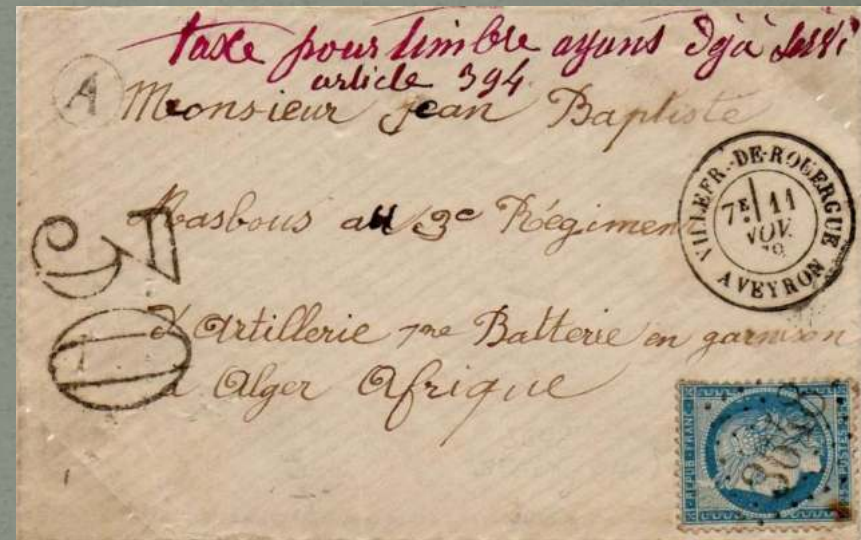 taxe pour timbre ayans déjà servi
article 394
A
Monsieur Jean Baptiste
Masbous au 3e Régiment
d'Artillerie 1re Batterie en garnison
a Alger Afrique
VILLEFR.-DE-ROUERGUE
7E 11
NOV.
AVEYRON
30
REPUB. FRANC.
POSTES